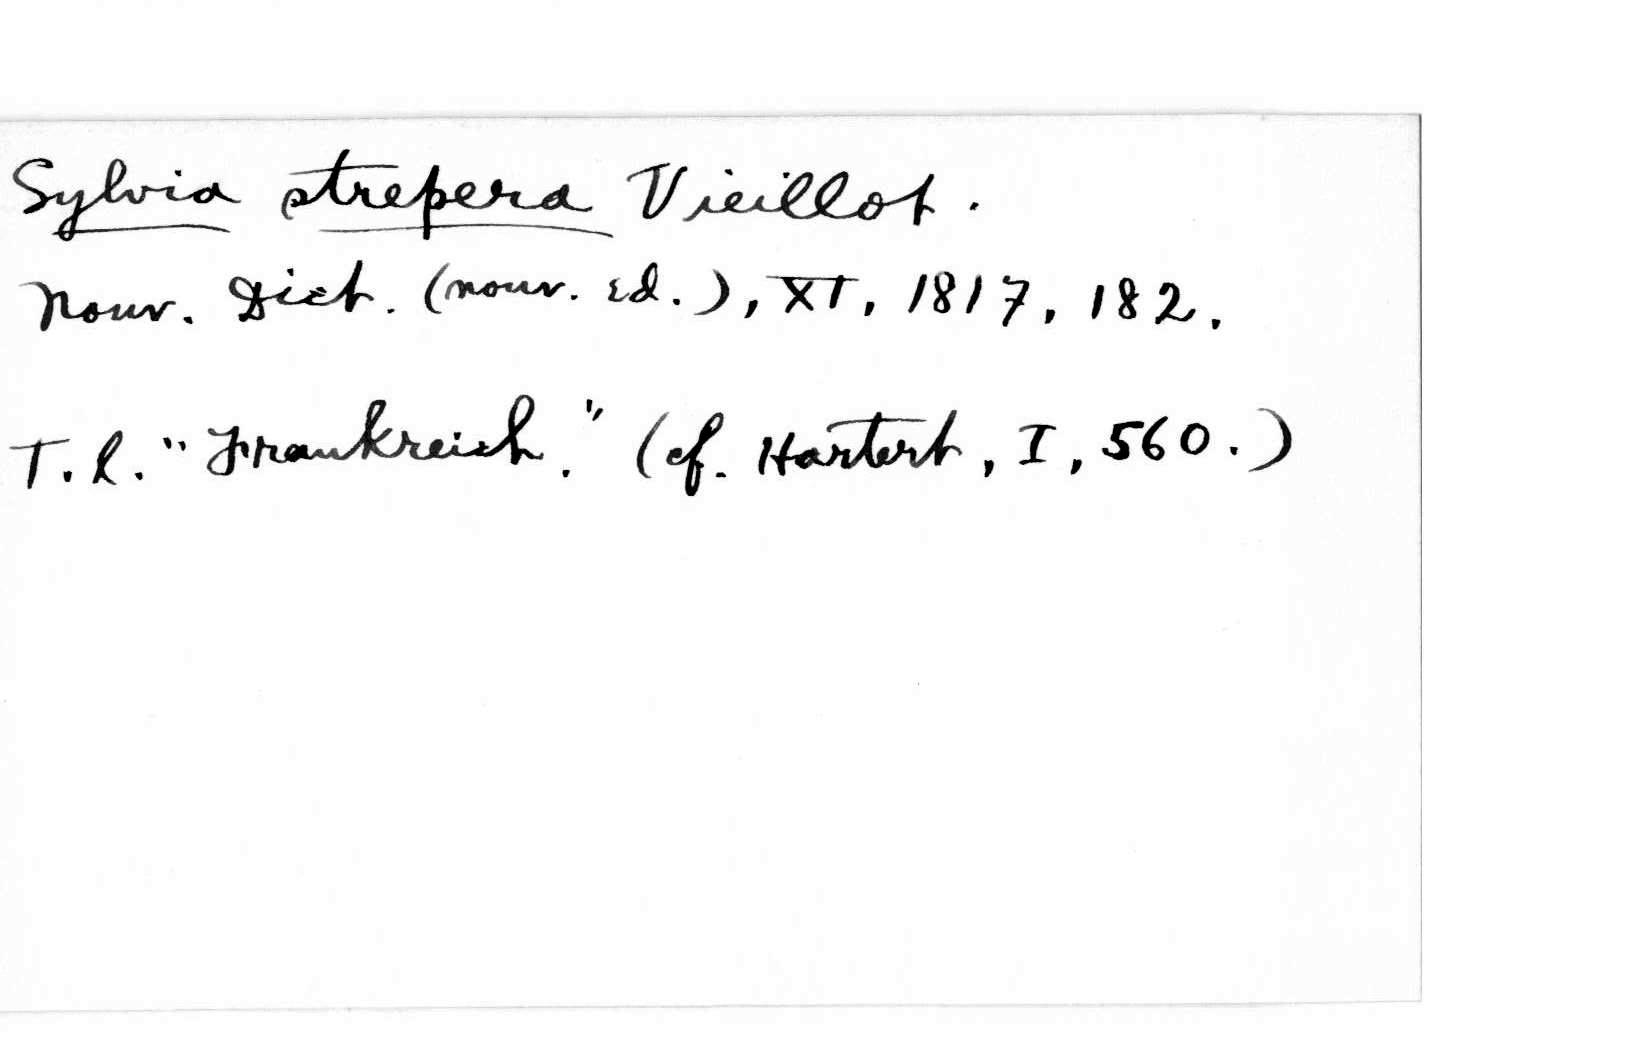 Sylvia strepera Vieillot.
Nouv. Dict. (nouv. Ed.), XI, 1817, 182.
T. l. "Frankreich." (cf. Hartert, I, 560.)